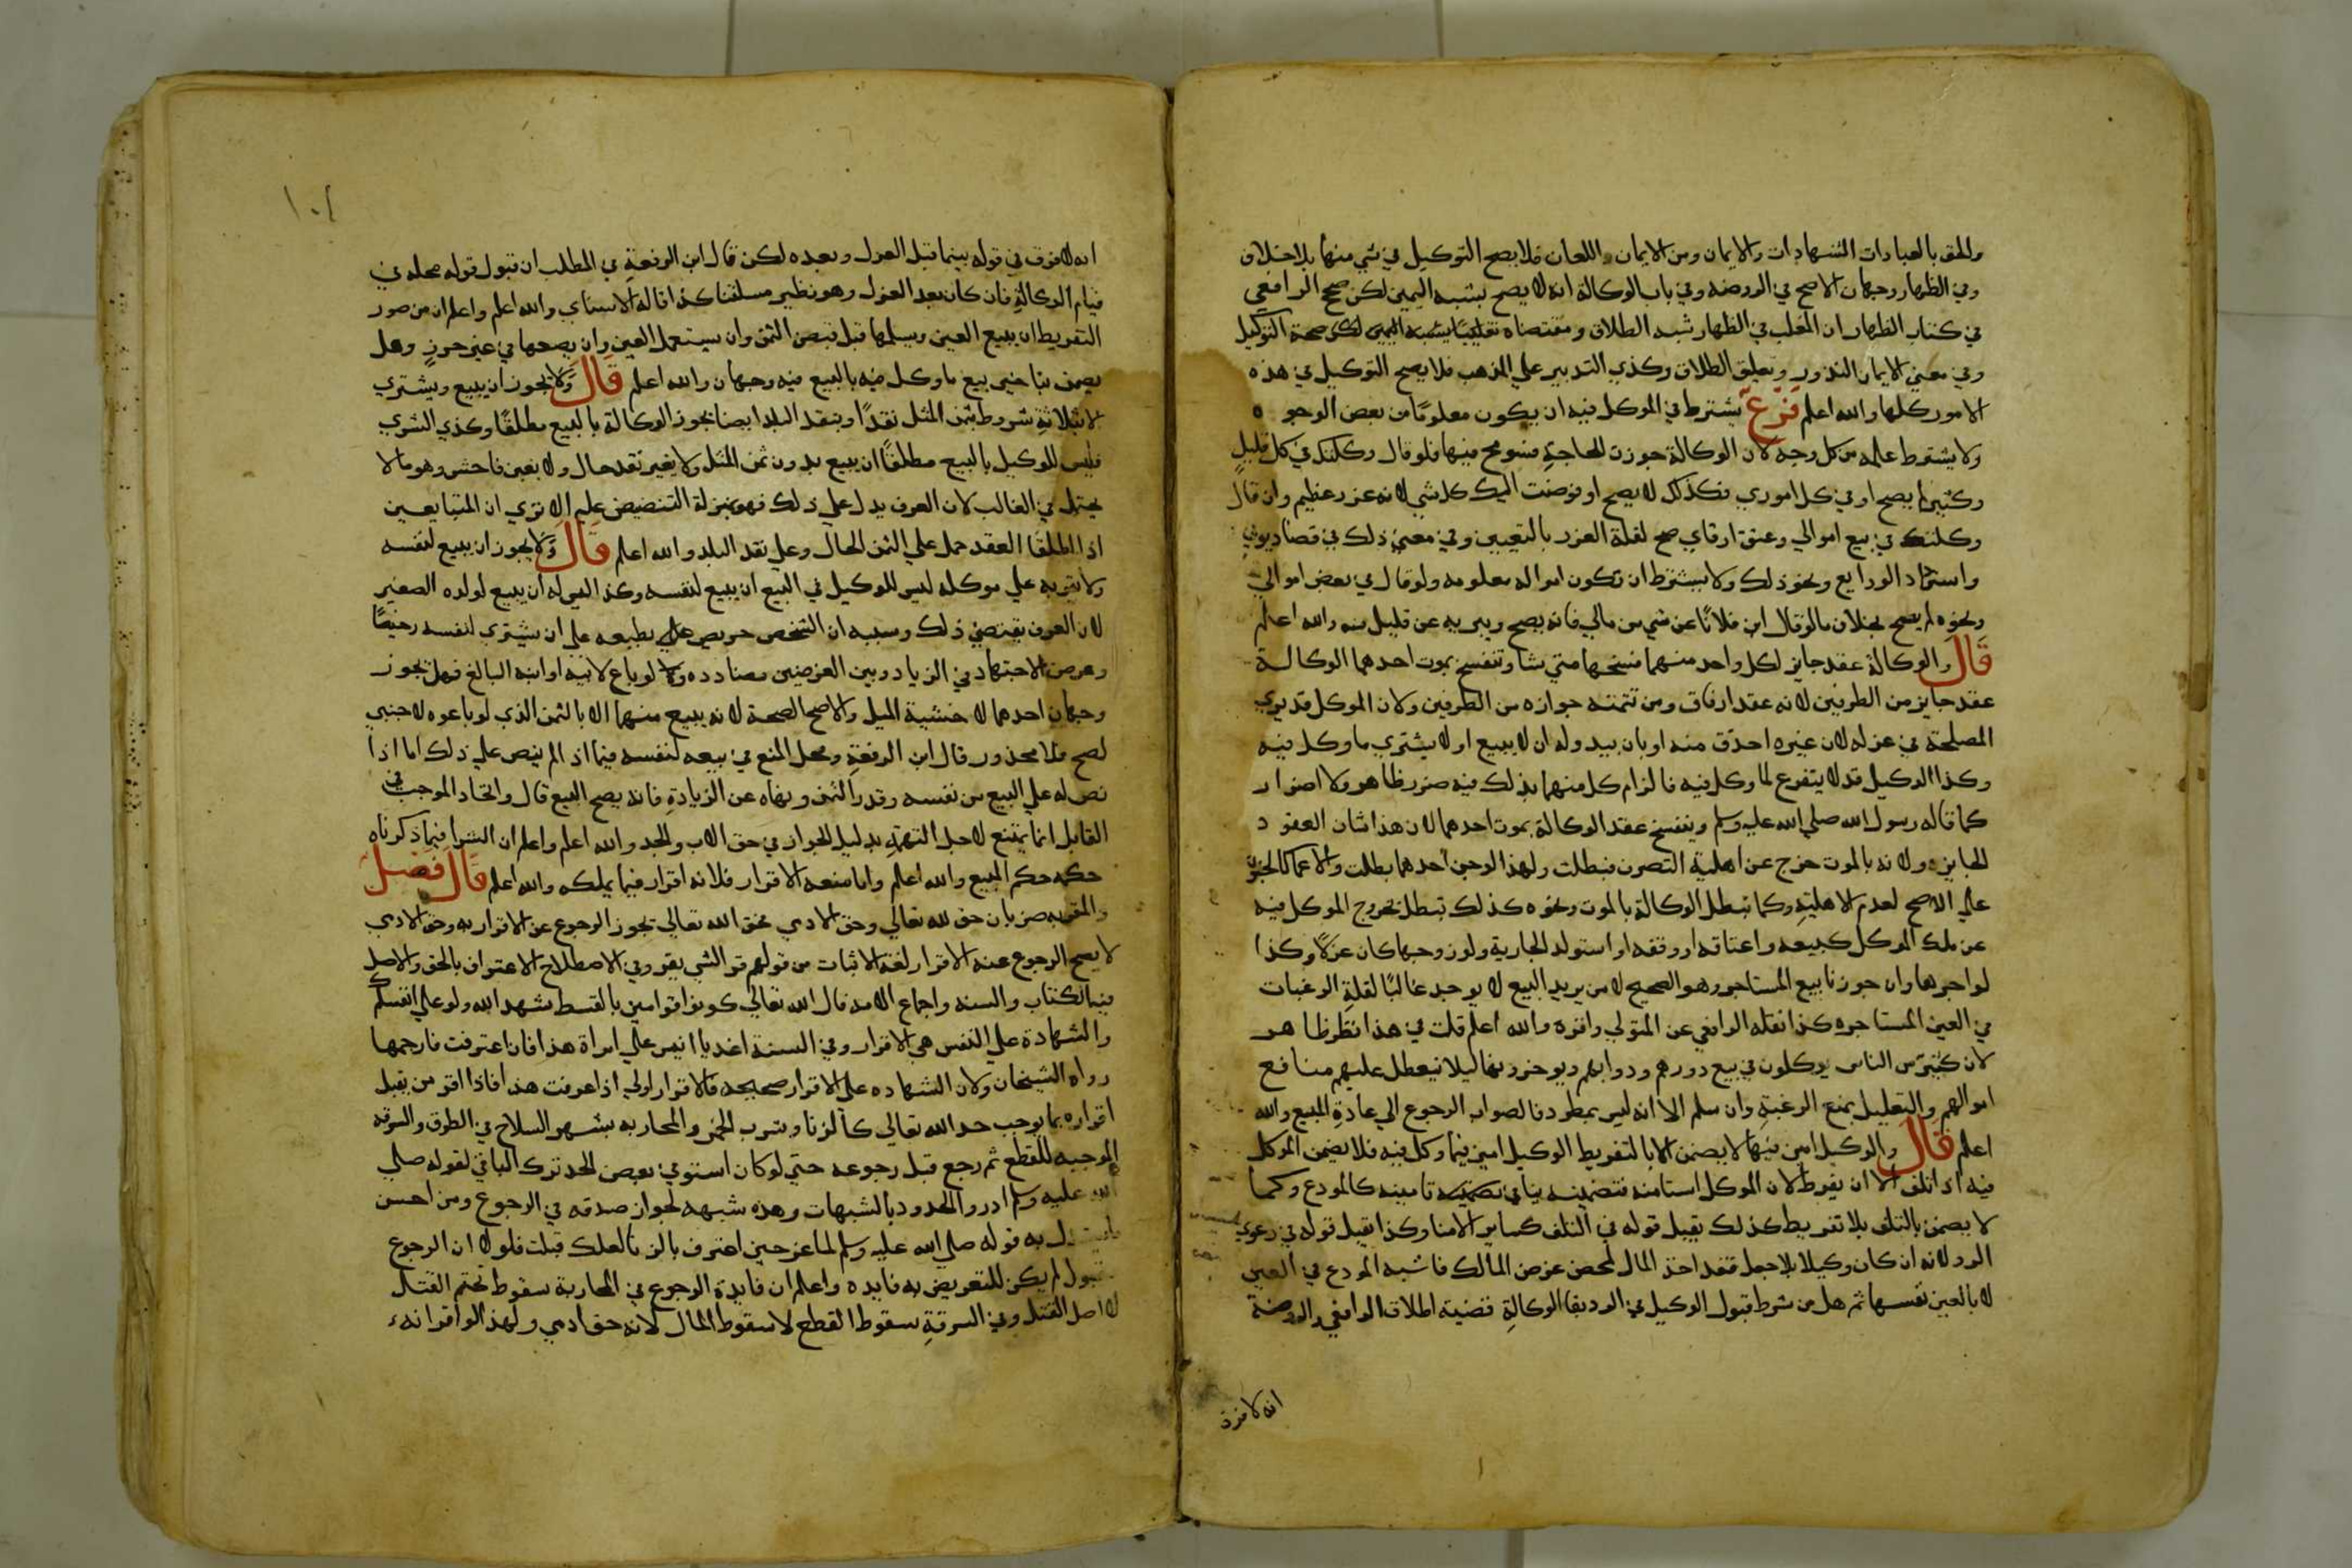 والحق بالعبادات الشهادات والايمان ومن الايمان اللعان فلا يصح التوكيل في شي منها بلا خلاف
وفي الظهار وجهان الاصح في الروضه وفي باب الوكالة انه لا يصح بشبه اليمين لكن صحح الرافعي
في كتاب الظهار ان المغلب في الظهار شبه الطلاق ومقتضاه صحة التوكيل
وفي معني الايمان النذور وتعليق الطلاق وكذي التدبير علي المذهب فلا يصح التوكيل في هذه
الامور كلها والله اعلم فرع يشترط في الموكل فيه ان يكون معلومًا من بعض الوجوه
ولا يشترط علمه من كل وجه لان الوكالة جوزت للحاجة فسومح فيها فلو قال وكلتك في كل قليل
وكثير لم يصح او في كل اموري فكذلك لا يصح او فوضت اليك كل شي لانه غرر عظيم وان قال
وكلتك في بيع اموالي وعتق ارقاي صح لقلة الغرر بالتعيين وفي معني ذلك في قضا ديوني
واسترداد الودايع ونحو ذلك ولا يشترط ان تكون امواله معلومه ولو قال في بعض اموالي
ونحوه لم يصح بخلاف ما لو قال ابر فلانًا عن شي من مالي فانه يصح ويبريه عن قليل منه والله اعلم
قال والوكالة عقد جايز لكل واحد منهما فسخها متي شا وتنفسخ بموت احدهما الوكالة
عقد جايز من الطرفين لانه عقد ارفاق ومن تتمته جوازه من الطرفين ولان الموكل قد يري
المصلحة في عزله لان غيره احذق منه او بان يبدو له ان لا يبيع او لا يشتري ما وكل فيه
وكذا الوكيل قد لا يتفرع لما وكل فيه فالزام كل منهما بذلك فيه ضرر ظاهر ولا اضرار
كما قاله رسول الله صلي الله عليه وسلم وينفسخ عقد الوكالة بموت احدهما لان هذا شان العقود
الجايزه ولانه بالموت خرج عن اهلية التصرف فبطلت ولهذا لو جن احدهما بطلت والاغما كالجنون
علي الاصح لعدم الاهلية وكما تبطل الوكالة بالموت ونحوه كذلك تبطل بخروج الموكل فيه
عن ملك الموكل كبيعه واعتاقه او وقفه او استولد الجارية ولو زوجها كان عزلًا وكذا
لو اجرها وان جوزنا بيع المستاجر وهو الصحيح لان من يريد البيع لا يوجد غالبًا لقلة الرغبات
في العين المستاجره كذا نقله الرافعي عن المتولي واقره والله اعلم قلت في هذا نظر ظاهر
لان كثيرًا من الناس يوكلون في بيع دورهم ودوابهم ويوجرونها ليلا تتعطل عليهم منافع
اموالهم والتعليل بمنع الرغبة وان سلم الا انه ليس بمطرد فالصواب الرجوع الي عادة المبيع والله
اعلم قال والوكيل امين فيها لا يضمن الا بالتفريط الوكيل امين فيما وكل فيه فلا يضمن الموكل
فيه اذا تلف الا ان يفرط لان الموكل استامنه فتضمينه ينافي تامينه كالمودع وكما
لا يضمن بالتلف بلا تفريط كذلك يقبل قوله في التلف كساير الامنا وكذا يقبل قوله في دعوي
الرد لانه ان كان وكيلا بلا جعل فقد اخذ المال لمحض غرض المالك فاشبه المودع في العين
لا بالعين نفسها ثم هل من شرط قبول الوكيل في الرد بقا الوكالة قضية اطلاق الرافعي والروضة
انه لا فرق
١٠٤
انه لا فرق في قوله بينما قبل العزل وبعده لكن قال ابن الرفعة في المطلب ان قبول قوله محله في
قيام الوكالة فان كان بعد العزل وهو نظير مسلتنا كذا قاله الاسناي والله اعلم واعلم ان من صور
التفريط ان يبيع العين ويسلمها قبل قبض الثمن وان يستعمل العين وان يضعها في غير حرز وهل
يضمن بتاخير بيع ما وكل فيه بالبيع فيه وجهان والله اعلم قال ولا يجوز ان يبيع ويشتري
الا بثلاثة شروط بثمن المثل نقدًا وبنقد البلد ايضا تجوز الوكالة بالبيع مطلقًا وكذي الشري
فليس للوكيل بالبيع مطلقًا ان يبيع بدون ثمن المثل ولا بغير نقد حال ولا بغبن فاحش وهو ما لا
يحتمل في الغالب لان العرف يدل علي ذلك فهو بمنزلة التنصيص عليه الا تري ان المتبايعين
اذا اطلقا العقد حمل علي الثمن الحال وعلي نقد البلد والله اعلم قال ولا يجوز ان يبيع لنفسه
ولا يقر به علي موكله ليس للوكيل في البيع ان يبيع لنفسه وكذا ليس له ان يبيع لولده الصغير
لان العرف يقتضي ذلك وسببه ان الشخص حريص بطبعه علي ان يشتري لنفسه رخيصًا
وغرض الاجتهاد في الزيادة وبين الغرضين مضادده ولو باع لابيه او ابنه البالغ فهل تجوز
وجهان احدهما لا خشية الميل والاصح الصحة لانه يبيع منهما الا بالثمن الذي لو باعوه لاجنبي
لصح فلا محذور قال ابن الرفعة ومحل المنع في بيعه لنفسه فيما اذا لم ينص علي ذلك اما اذا
نص له علي البيع من نفسه وقدر الثمن ونهاه عن الزيادة فانه يصح البيع قال واتحاد الموجب في
القابل انما يمتنع لاجل التهمة بدليل الجواز في حق الاب والجد والله اعلم واعلم ان الشرا فيما ذكرناه
حكمه حكم المبيع والله اعلم واما منعه الاقرار فلانه اقرار فيما يملكه والله اعلم قال فصل
والمقر به ضربان حق لله تعالي وحق الادمي فحق الله تعالي تجوز الرجوع عن الاقرار به وحق الادمي
لا يصح الرجوع عنه الاقرار لغة الاثبات من قولهم قر الشي يقر وفي الاصطلاح الاعتراف بالحق والاصل
فيه الكتاب والسنه واجماع الامه قال الله تعالي كونوا قوامين بالقسط شهد الله ولو علي انفسكم
والشهادة علي النفس هي الاقرار وفي السنة اغد يا انيس علي امراة هذا فان اعترفت فارجمها
رواه الشيخان ولان الشهاده علي الاقرار صحيحه فالاقرار اولي اذا عرفت هذا فاذا اقر من يقبل
اقراره بما يوجب حد الله تعالي كالزنا وشرب الخمر والمحاربه بشهر السلاح في الطرق والسرقه
الموجبه للقطع ثم رجع قبل رجوعه حتي لو كان استوفي بعض الحد ترك الباقي لقوله صلي
الله عليه وسلم ادروا الحدود بالشبهات وهذه شبهه لجواز صدقه في الرجوع ومن احسن
به قوله صلي الله عليه وسلم لماعز حين اعترف بالزنا لعلك قبلت فلولا ان الرجوع
لم يكن للتعريض به فايده واعلم ان فايدة الرجوع في المحاربة سقوط تحتم القتل
لا اصل القتل وفي السرقة سقوط القطع لا سقوط المال لانه حق ادمي ولهذا لو اقر انه